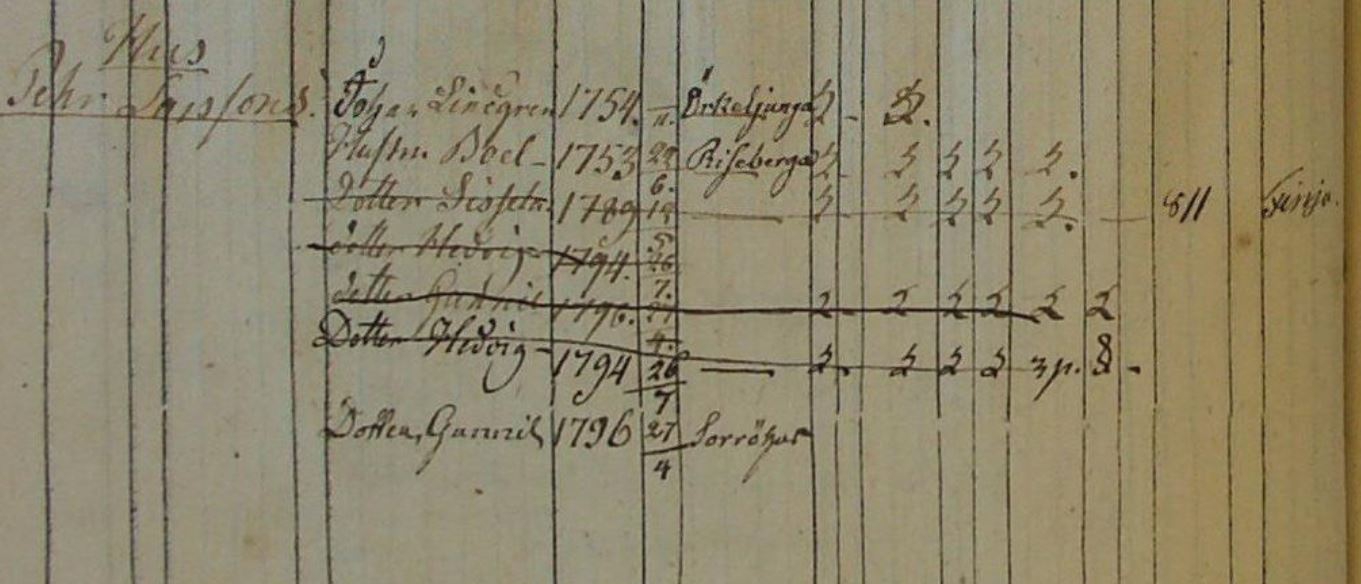 Hus
Pehr
Johan Lindgren 1754. Örkeljunga 2 - 2.
Hustru Boel - 1753 22/6. Riseberga 2 2 2 2 2.
Dotter 1789 2 2 2 2 2. 811 Finja.
Dotter Hedvig 1794. 26/7.
Dotter Gunnil 1796. 27/4. 2 2 2 2 2 2
Dotter Hedvig - 1794 26/7 — 2. 2 2 2 3p. 8 -
Dotter, Gunnil 1796 27/4